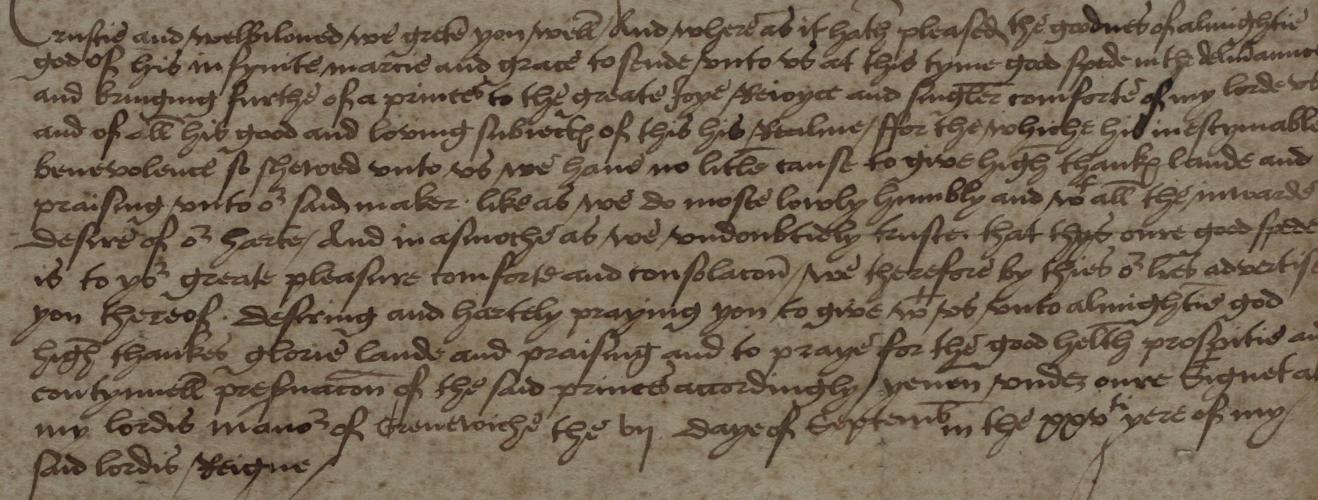 Trustie and welbiloved we grete you well And where as it hath pleased the goodnes of almightie
god of his infynite marcie and grace to sende unto us at this tyme good spede in the delivaunce
and bringing furthe of a princes to the greate Joye Reioyce and singler comforte of my lorde us
and of all his good and loving subiectes of this his Realme / ffor the whiche his inestymable
benevolence so shewed unto us we have no litle cause to give high thankes laude and
praising unto oʳ said maker · like as we do moste lowly humbly and wᵗ all the inwarde
desire of oʳ harte / And inasmoche as we undoubtidely truste that thys oure good spede
is to yoʳ greate pleasure comforte and consolacon / we therefore by thies oʳ lres advertise
you thereof · desiring and hartely praying you to give wᵗ us unto almightie god
high thankes glorie laude and praising and to praye for the good helth prosperitie
contynuell presuacon of the said princes accordingly / yeuen under oure Signet at
my lordis manoʳ of Grenewiche the vij daye of Septemb in the xxvᵗⁱ yere of my
said lordis Reigne /